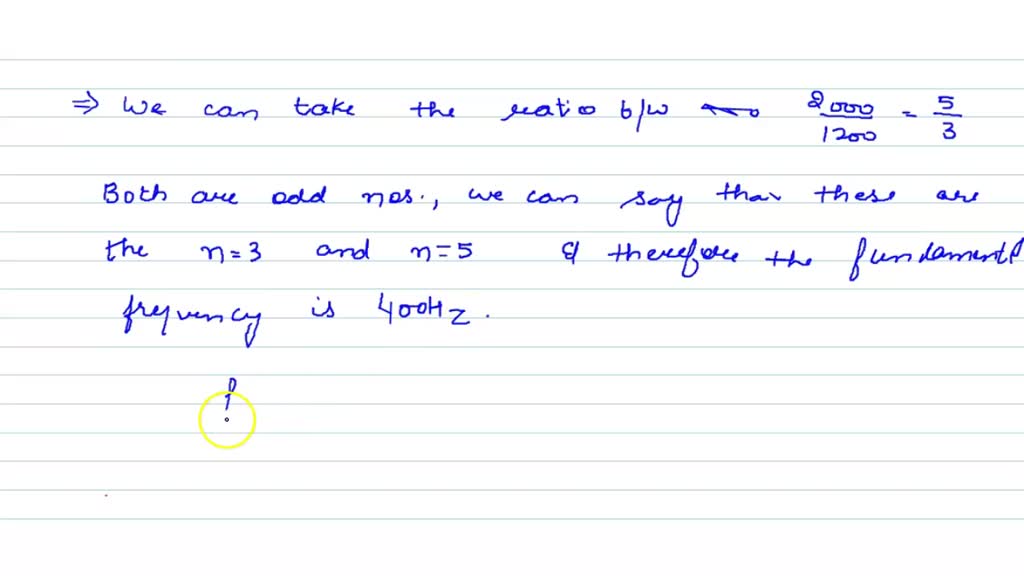 ⇒ We can take the ratio b/w ← 2000/1200 = 5/3
Both are odd nos., we can say that these are
the n=3 and n=5 & therefore the fundamental
frequency is 400Hz.